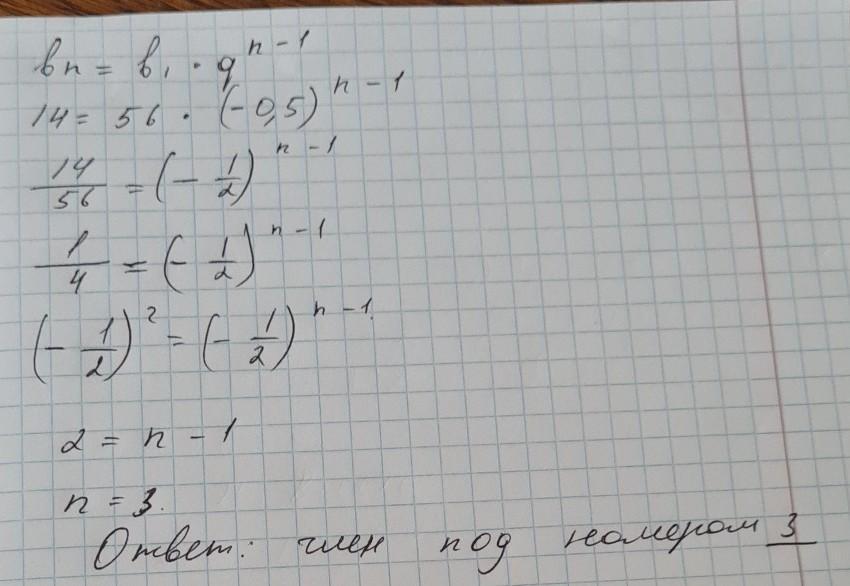 bn = b₁ · q^(n-1)
14 = 56 · (-0,5)^(n-1)
14/56 = (- 1/2)^(n-1)
1/4 = (- 1/2)^(n-1)
(- 1/2)² = (- 1/2)^(n-1)
2 = n - 1
n = 3.
Ответ: член под номером 3